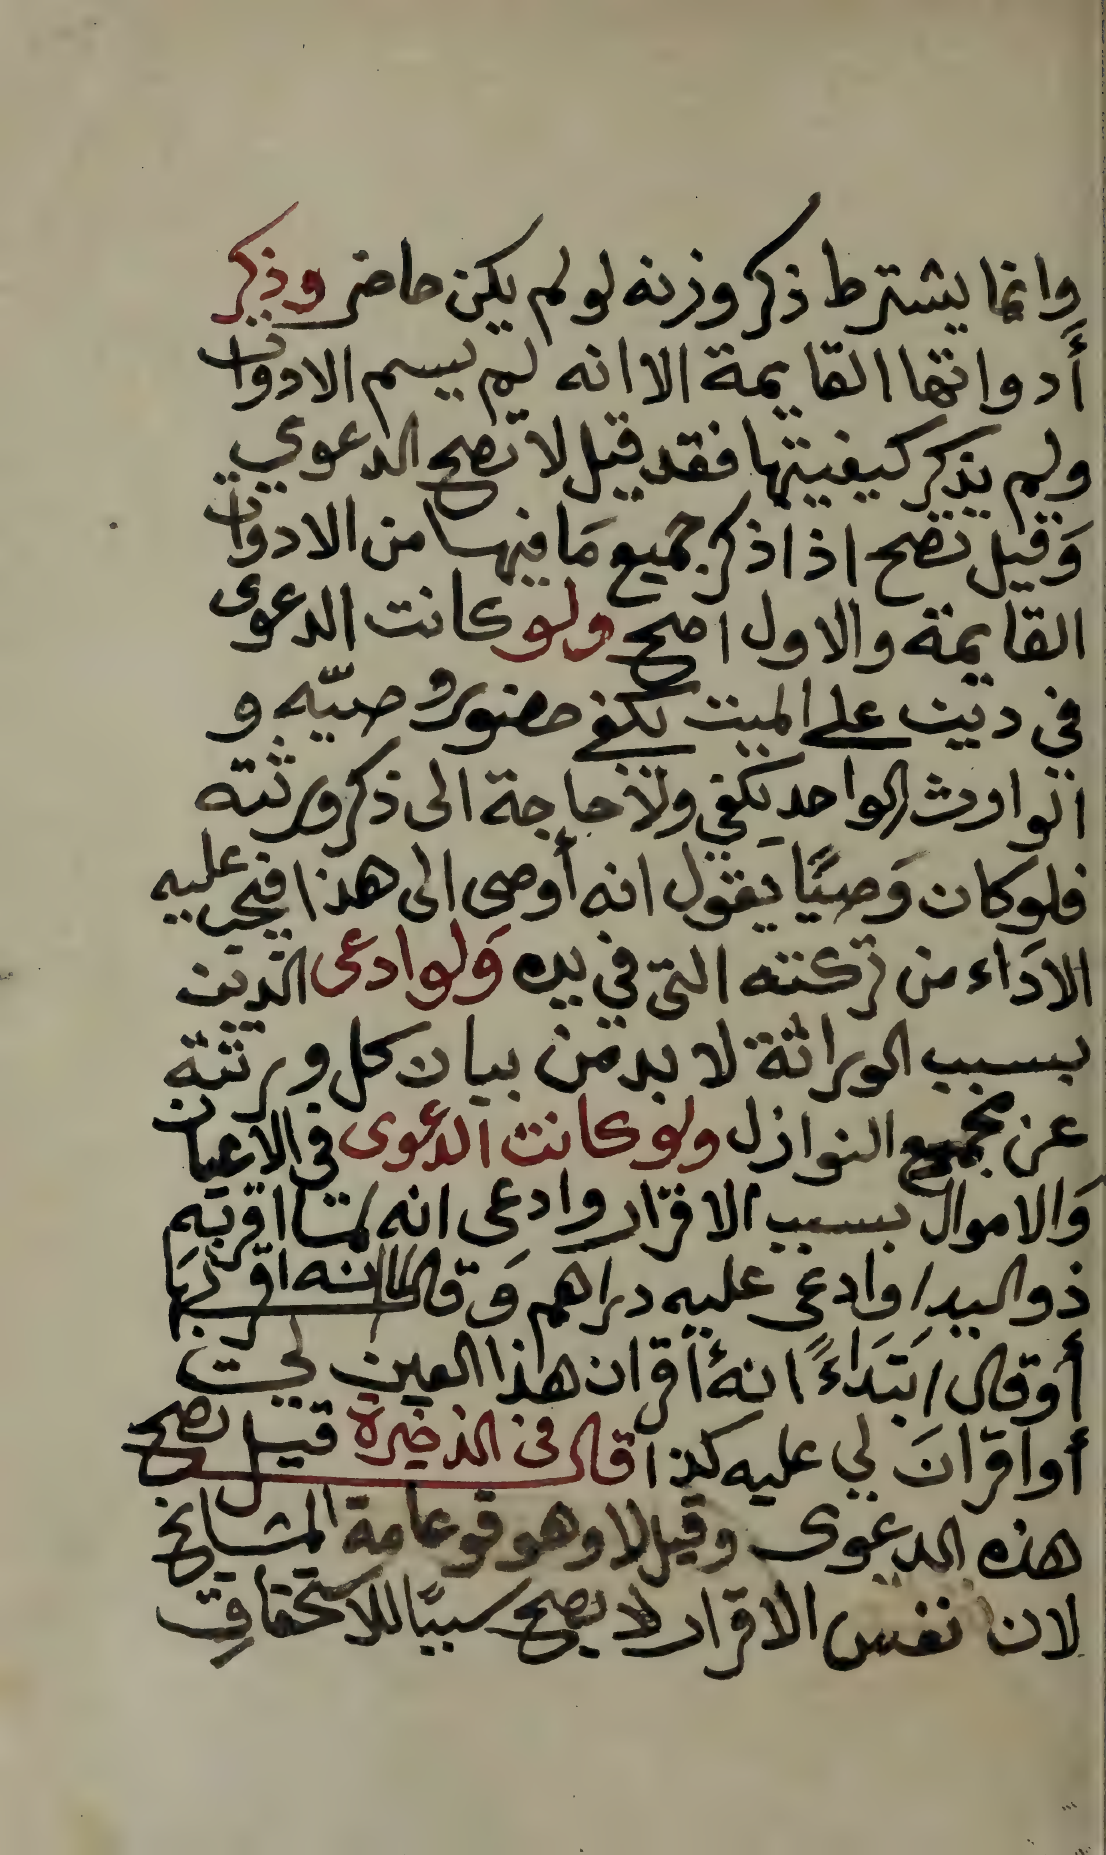 وانما يشترط ذكر وزنه لو لم يكن حاضر وذكر
أدواتها القايمة الا انه لم يسم الادوات
ولم يذكر كيفيتها فقد قيل لا تصح الدعوي
وَقيل تصح اذا ذكر جميع مَا فيها من الادوات
القايمة والاول اصح ولو كانت الدعوى
في دين على الميت تكفي حضور وصيّه و
الوارث الواحد يكفي ولا حاجة الى ذكر ورثته
فلو كان وَصيًّا يقول انه أوصى الى هذا فيجب عليه
الادَاء من تركته التي في يده وَلو ادعى الدين
بسبب الوراثة لا بد من بيان كل ورثته
عن مجمع النوازل ولو كانت الدعوى في الاعيان
وَالاموال بسبب الاقرار وادعى انه لما اقر به
ذو اليد او ادعى عليه دراهم وَقال لما انه اقر بها
أو قال ابتَداءً انهُ أقر ان هذا العين لي
أو اقر انَ لي عليه كذا قال في الذخيرة قيل تصح
هذه الدعوى وقيل لا وهو قو عامة المشايخ
لان نفس الاقرار لا يصح سببًا للاستحقاق